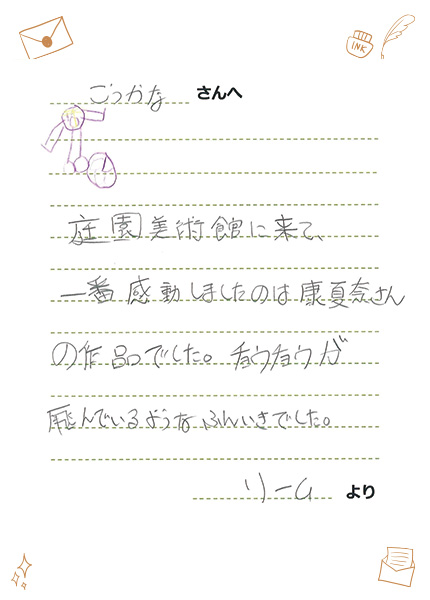 ごうかな さんへ
庭園美術館に来て、
一番感動しましたのは康夏奈さん
の作品でした。チョウチョウが
飛んでいるようなふんいきでした。
リーム より
INK